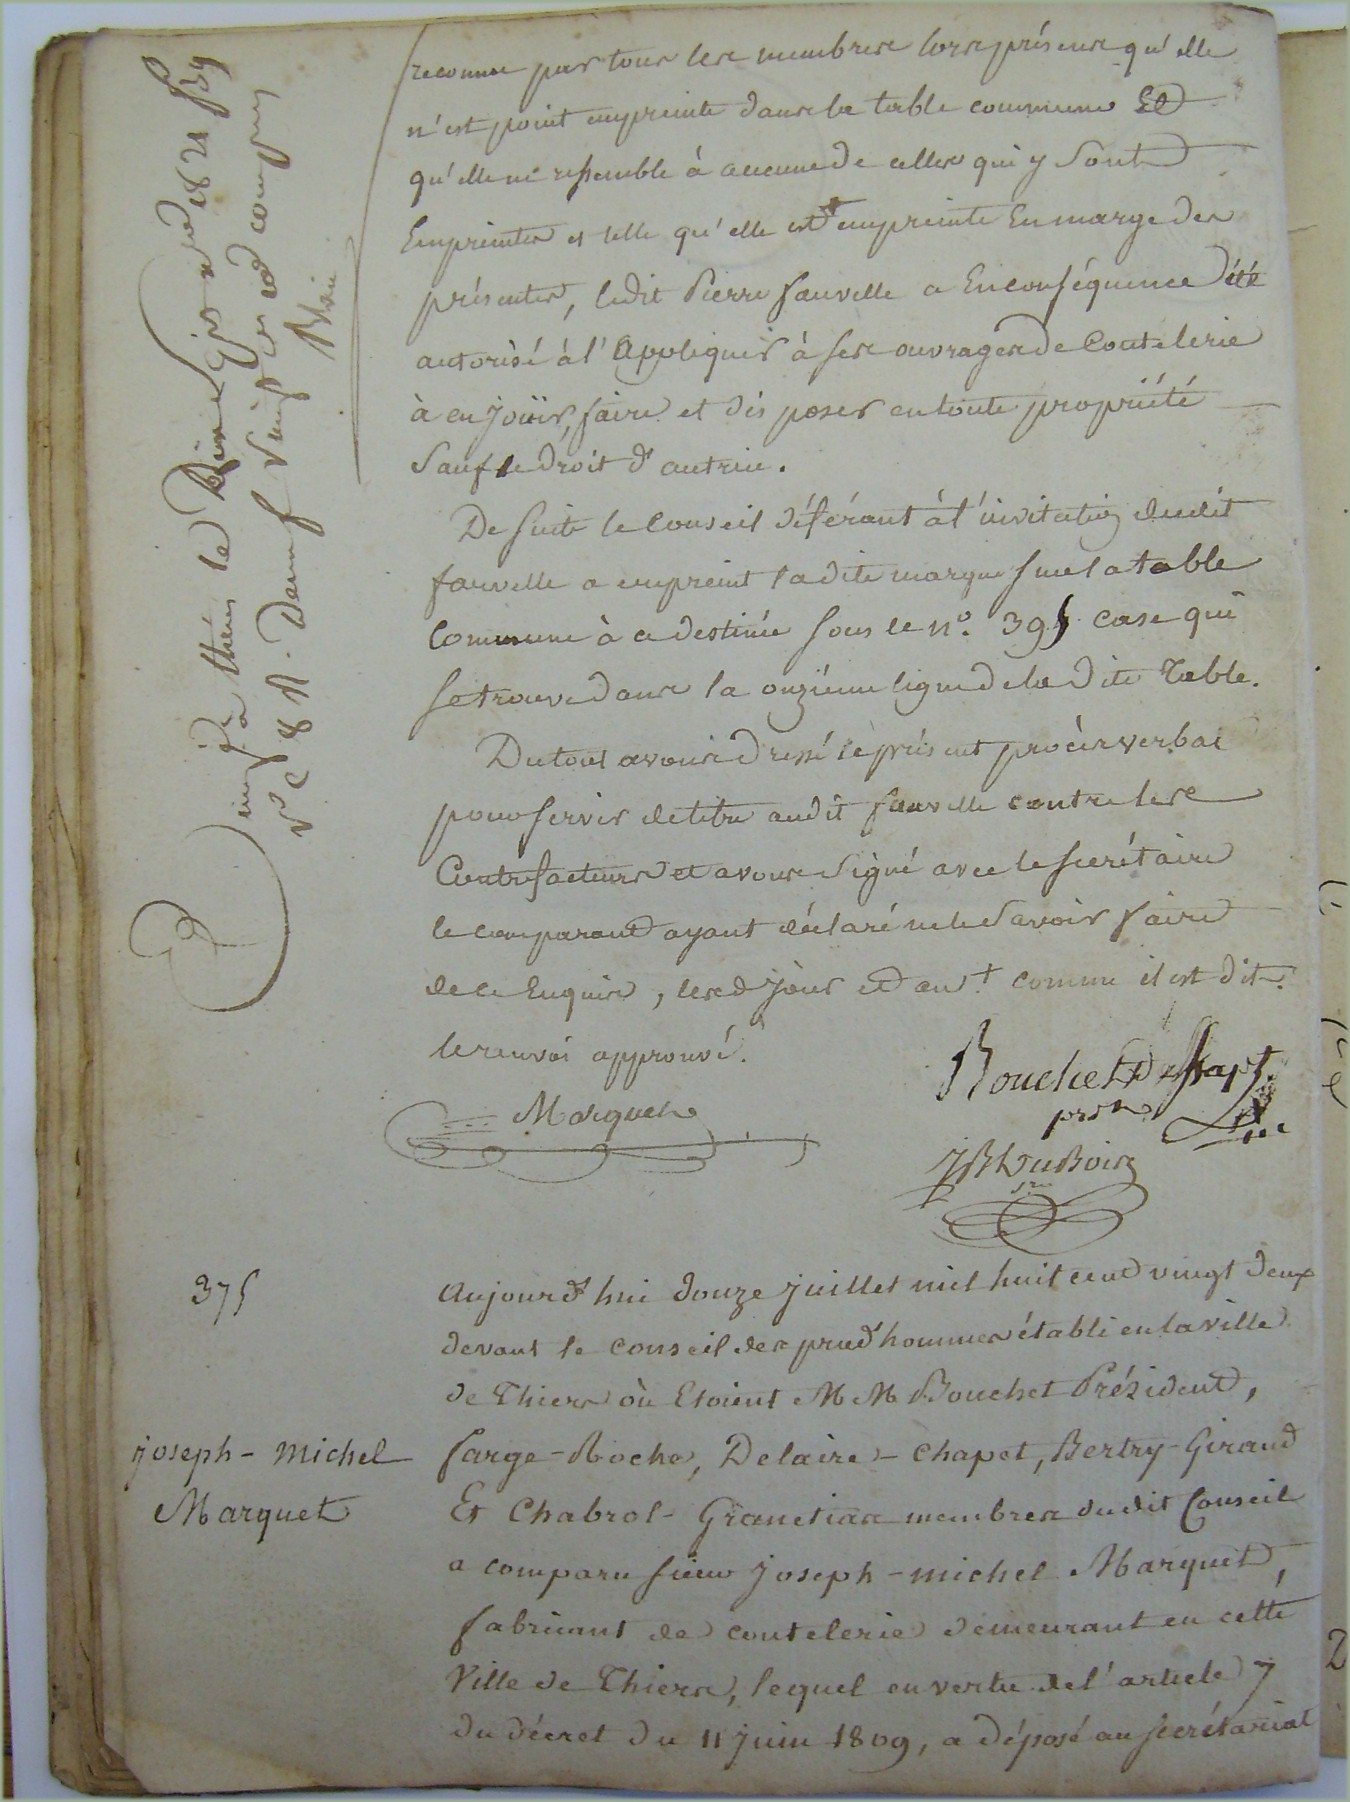 reconnu par tous les membres lors présens qu'elle
n'est point empreinte dans la table commune Et
qu'elle ne ressemble à aucune de celles qui y sont
Empreintes et telle qu'elle est empreinte En marge des
présentes, ledit Pierre fauvelle a En conséquence été
autorisé à l'appliquer à ses ouvrages de Coutelerie
à en jouïr, faire et disposer en toute propriété
Sauf le droit d'autrui.
De suite le Conseil déférant à l'invitation dudit
fauvelle a empreint ladite marque sur la table
Commune à ce destinée sous le n.º 395 case qui
se trouve dans la onzième ligne de la dite Table.
Du tout avons dressé le présent procès verbal
pour servir de titre audit fauvelle contre les
Contrefacteurs et avons signé avec le secrétaire
le comparant ayant déclaré ne le savoir faire
de ce Enquis, lesd. jour et an † comme il est dit.
le renvoi approuvé.
Marquet
Bouchet
prdt
JB DuBois
sre
Enregistré à thiers le 1821 f.
vo c 8 R. Deux francs vingt cent. compris
375
Joseph-Michel
Marquet
Aujourd'hui douze juillet mil huit cent vingt deux
devant le conseil des prud'hommes établi en la ville
de Thiers où Etoient M M Bouchet Président,
Farge-Roche, Delaire-Chapet, Bertry-Giraud
Et Chabrol-Granetias membres dudit Conseil
a comparu sieur joseph-michel Marquet,
fabricant de coutelerie demeurant en cette
Ville de Thiers, lequel en vertu de l'article 7
du décret du 11 juin 1809, a déposé au secrétariat